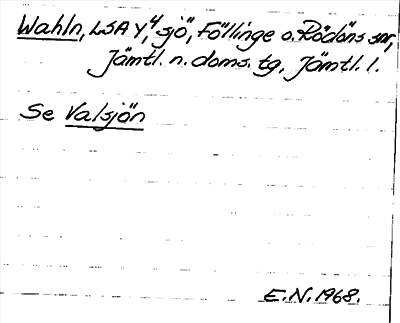 Wahln, LSA Y, 4 "sjö", Föllinge o. Rödöns snr,
Jämtl. n. doms. tg, Jämtl. l.
Se Valsjön
E.N. 1968.